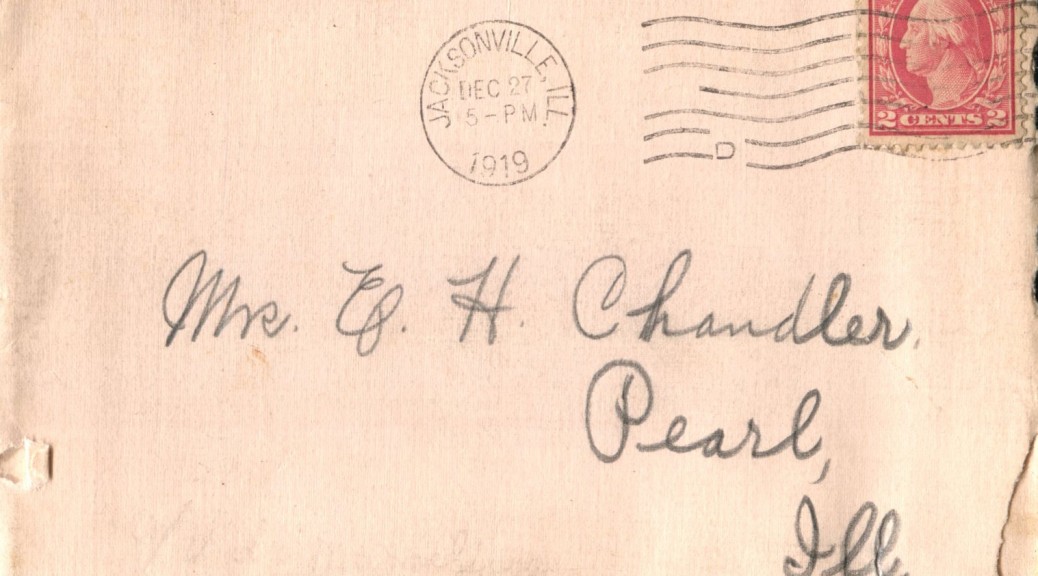 JACKSONVILLE, ILL.
DEC 27
5-PM
1919
D
2 CENTS 2
Mr. E. H. Chandler.
Pearl,
Ill.